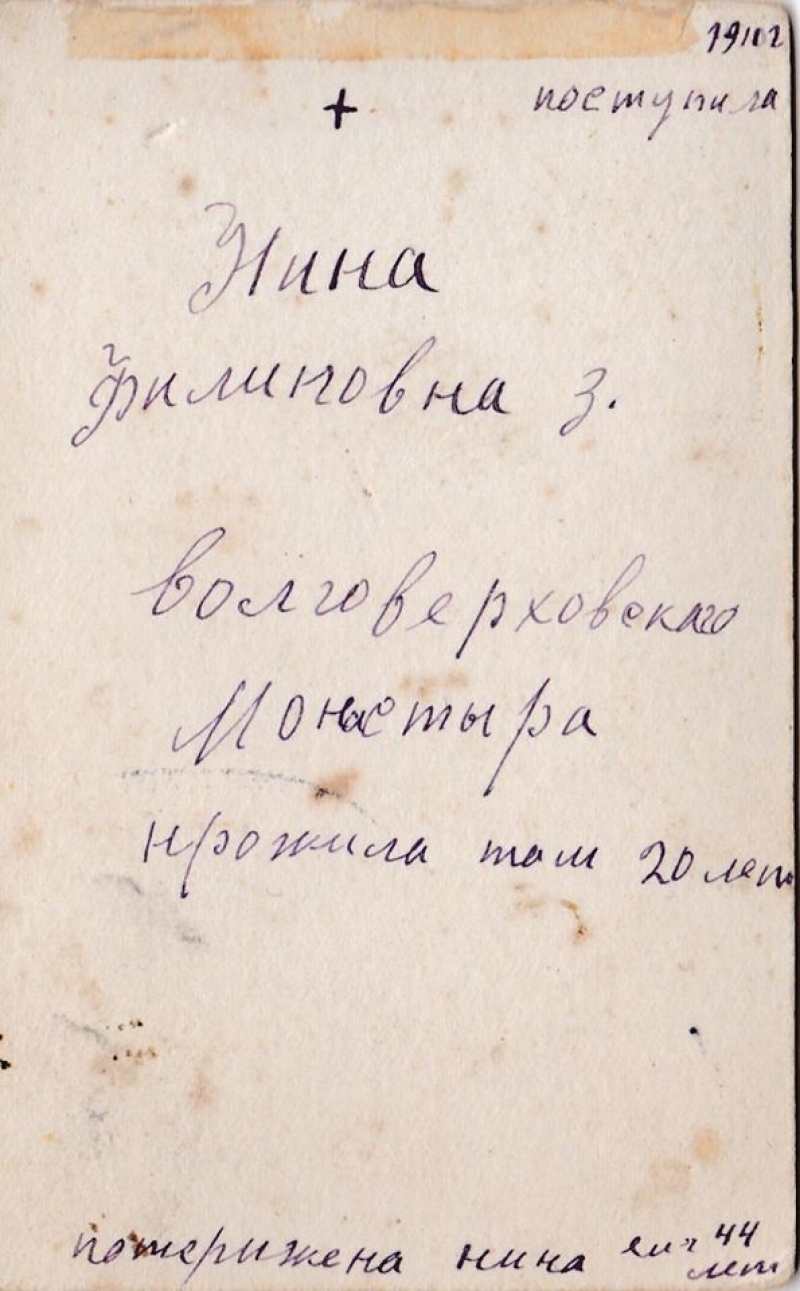 поступила
+
Нина
Филиповна З.
Волговерховскаго
Монастыра
прожила там 20 лет
потерижена нина 44
лет